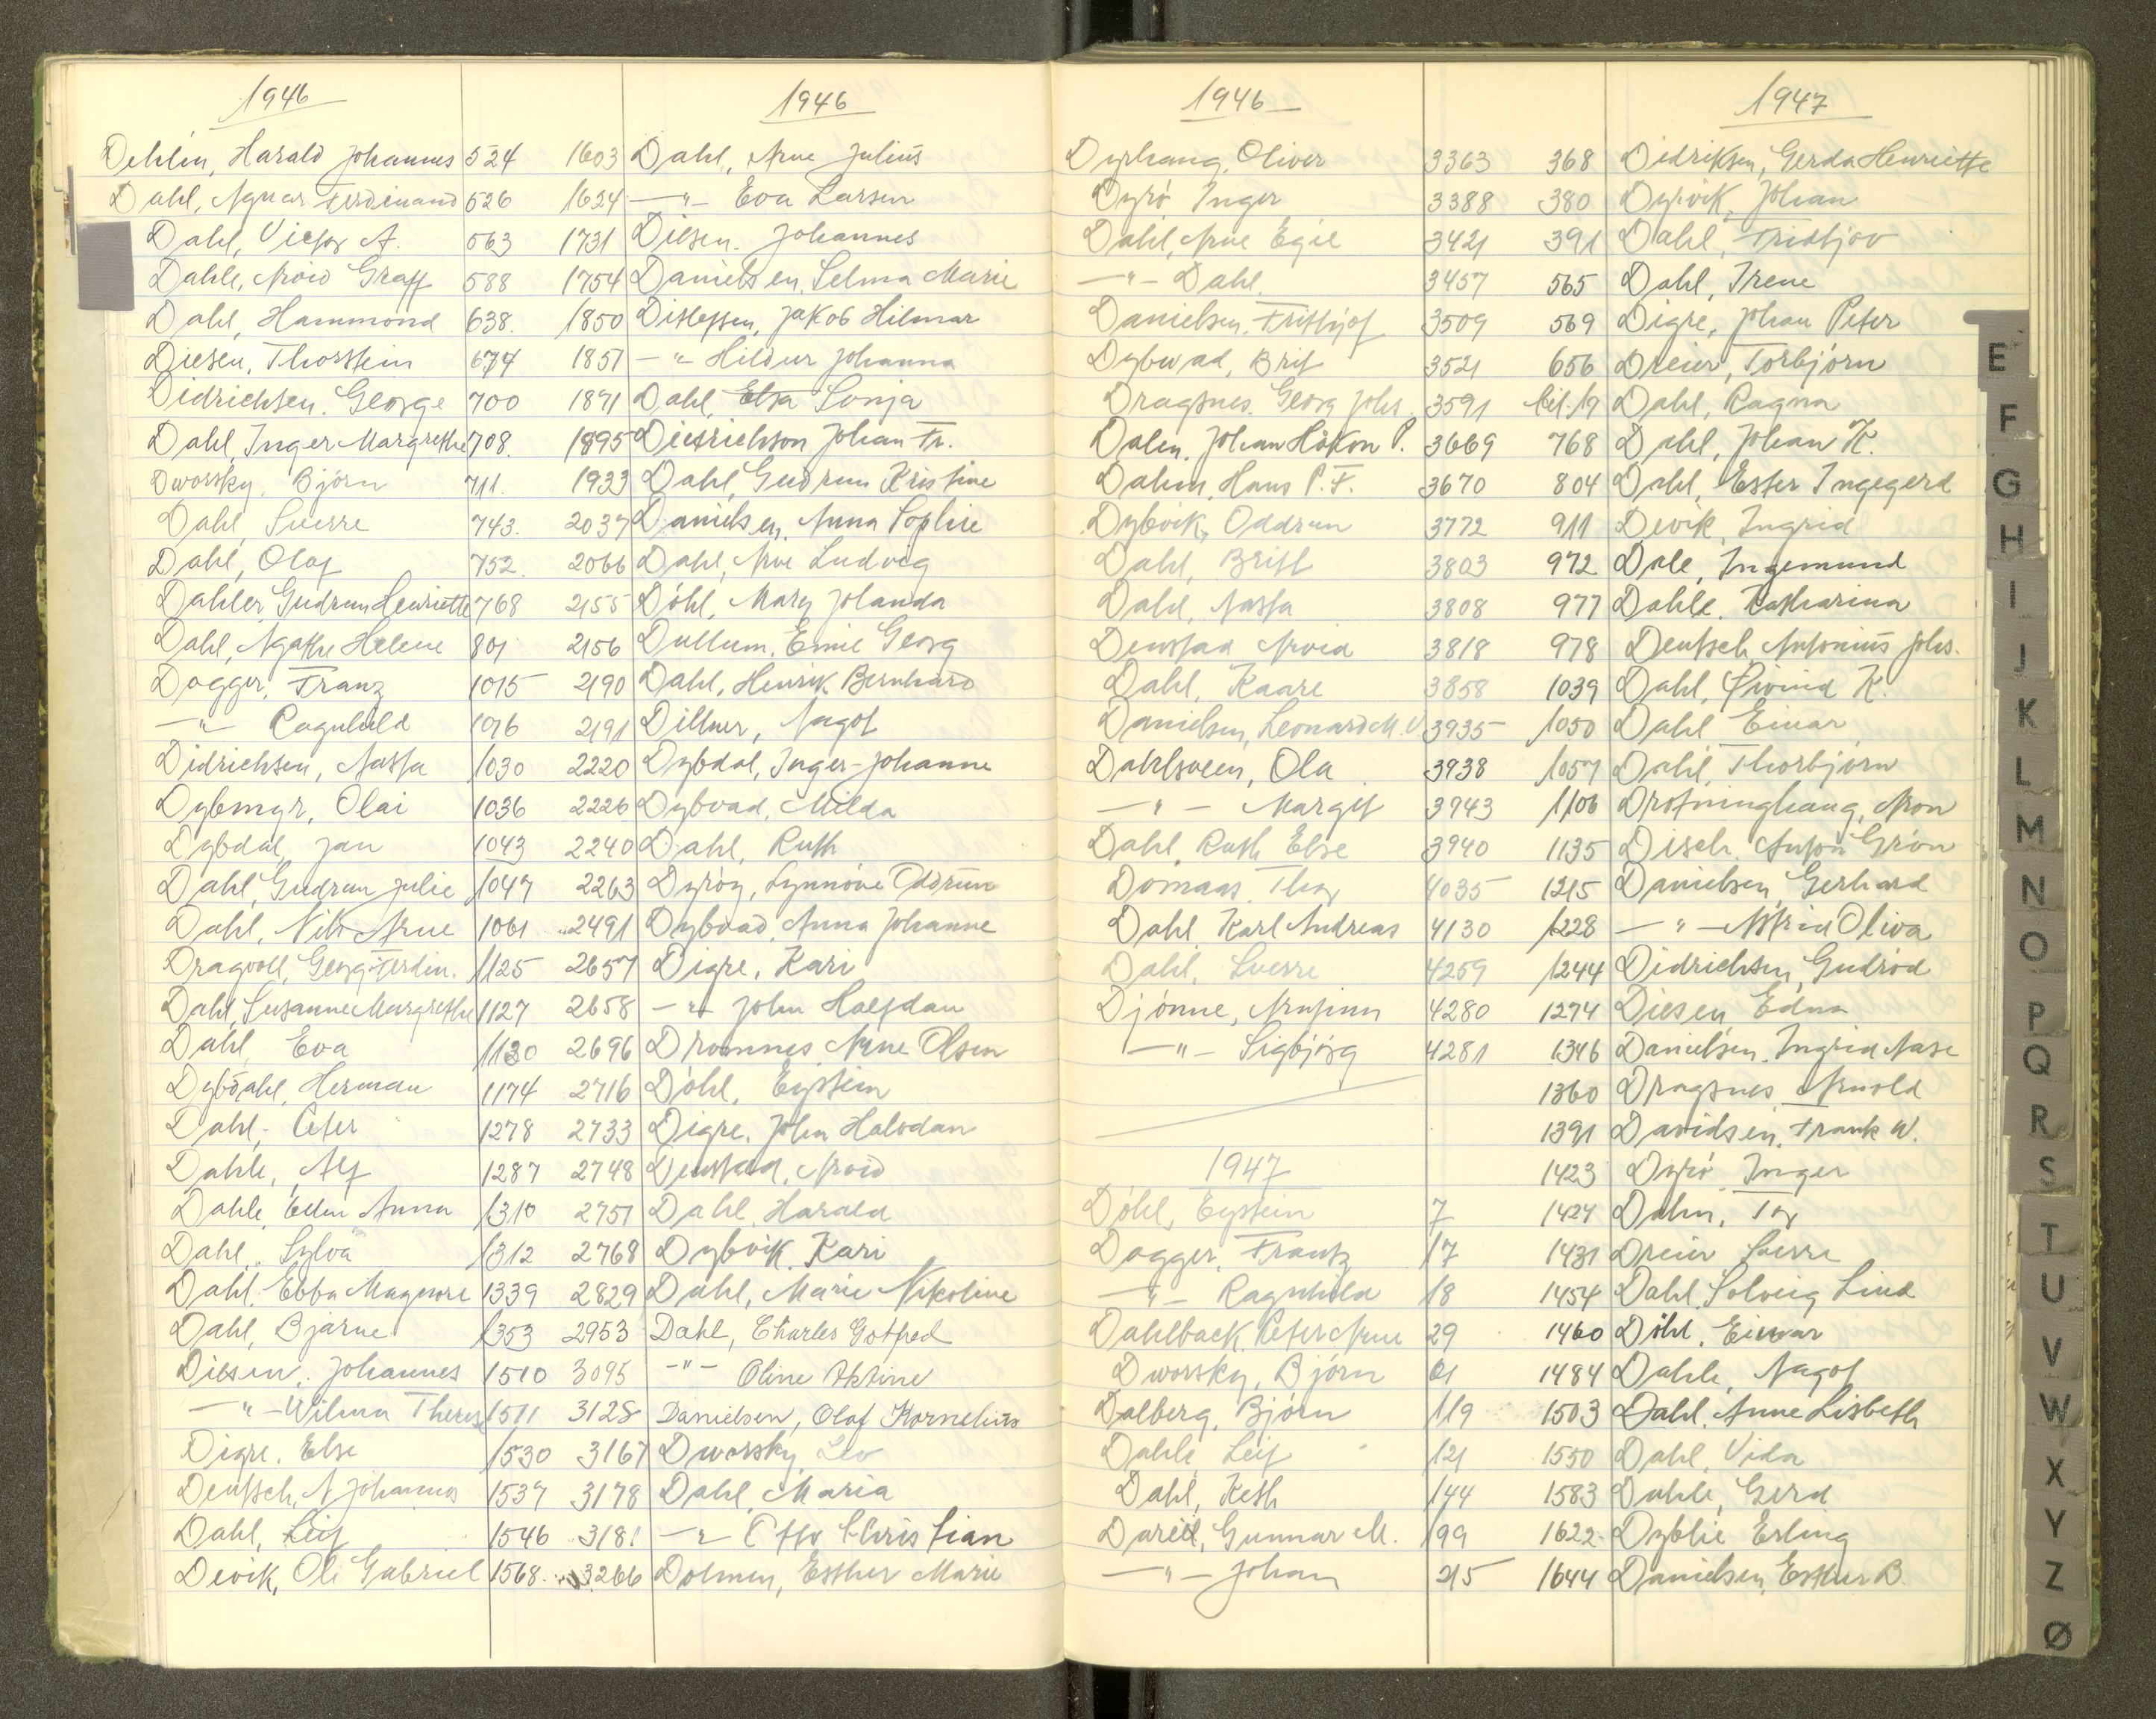 1946
Dehlin, Harald Johannes 524
Dahl, Agnar Ferdinand 526
Dahl, Victor A. 563
Dahle, Arvid Graff 588
Dahl, Hammond 638.
Diesen, Thorstein 674
Didrichsen. George 700
Dahl, Inger Margrethe 708.
Dworsky, Bjørn 711.
Dahl, Sverre 743.
Dahl, Olaf 752.
Dahler, Gudrun Henriette 768
Dahl, Agathe Helene 801
Dogger, Franz 1015
—"— Ragnhild 1016
Didrichsen, Aasta 1030
Dybmyr, Olai 1036
Dybdal, Jan 1043
Dahl, Gudrun Julie 1047
Dahl, Nils Arne 1061
Dragvoll, Georg Ferdin. 1125
Dahl, Susanne Margrethe 1127
Dahl, Eva 1130
Dybdahl, Herman 1174
Dahl, Peter 1278
Dahle, Alf 1287
Dahle, Ellen Anna 1310
Dahl, Sylva 1312
Dahl, Ebba Magnore 1339
Dahl, Bjarne 1353
Diesen, Johannes 1510
—"— Wilma Theres 1511
Digre, Else 1530
Deutsch, A. Johannes 1537
Dahl, Leif 1546
Devik, Ole Gabriel 1568
1946
1603 Dahl, Arne Julius
1624 —"— Eva Larsen
1731 Diesen. Johannes
1754 Danielsen, Selma Marie
1850 Ditlefsen, Jakob Hilmar
1851 —"— Hildur Johanna
1891 Dahl, Elsa Sonja
1895 Dietrichson Johan Fr.
1933 Dahl, Gudrun Kristine
2037 Danielsen, Anna Sophie
2066 Dahl, Arne Ludvig
2155 Döhl, Mary Jolanda
2156 Dullum, Emil Georg
2190 Dahl, Henrik Bernhard
2191 Dillner, Aagot
2220 Dybdal, Inger-Johanne
2226 Dybvad, Milda
2240 Dahl, Ruth
2263 Dyrøy, Synnøve Oddrun
2491 Dybvad, Anna Johanne
2657 Digre, Kari
2658 —"— John Halfdan
2696 Dromnes, Arne Olsen
2716 Døhl, Eystein
2733 Digre, John Halvdan
2748 Denstad, Arvid
2751 Dahl, Harald
2768 Dybvik, Kari
2829 Dahl, Marie Nikoline
2953 Dahl, Charles Gotfred
3095 —"— Oline Aktine
3128 Danielsen, Olaf Kornelius
3167 Dworsky, Leo
3178 Dahl, Maria
3181 —"— Otto Christian
3266 Dolmen, Esther Marie
1946
Dyrhaug, Oliver 3363
Dyrø Inger 3388
Dahl, Arne Egil 3421
—"— Dahl. 3457
Danielsen, Fritjof 3509
Dybwad, Brit 3521
Dragsnes, Georg Johs. 3591
Dalen, Johan Håkon P. 3669
Dahm, Hans P. F. 3670
Dybvik, Oddrun 3772
Dahl, Britt 3803
Dahl, Aasta 3808
Denstad Arvid 3818
Dahl, Kaare 3858
Danielsen, Leonard M. V 3935
Dahlsveen, Ola 3938
—"— Margit 3943
Dahl, Ruth Else 3940
Domaas, Thor 4035
Dahl Karl Andreas 4130
Dahl, Sverre 4259
Djønne, Arnfinn 4280
—"— Sigbjørg 4281
1947
Døhl, Eystein 7
Dogger, Frantz 17
—"— Ragnhild 18
Dahlback, Peter Arne 29
Dworsky, Bjørn 61
Dalberg, Bjørn 119
Dahle, Leif 121
Dahl, Keth 144
Darell, Gunnar M. 199
—"— Johan 215
1947
368 Didriksen, Gerda Henriette
380 Dyrvik, Johan
391 Dahl, Fridtjov
565 Dahl, Irene
569 Digre, Johan Peter
656 Dreier, Torbjørn
bil.19 Dahl, Ragna
768 Dahl, Johan K.
804 Dahl, Ester Ingegerd
911 Devik, Ingrid
972 Dale, Ingemund
977 Dahle, Katharina
978 Deutsch Antonius Johs.
1039 Dahl, Øivind K.
1050 Dahl Einar
1057 Dahl, Thorbjørn
1106 Drotninghaug, Aron
1135 Disch, Anton Grøn
1215 Danielsen, Gerhard
1228 —"— Astrid Oliva
1244 Didrichsen, Gudrød
1274 Diesen, Edna
1346 Danielsen, Ingrid Aase
1360 Dragsnes, Arnold
1391 Davidsen, Frank W.
1423 Dyrø, Inger
1424 Dahm, Tor
1431 Dreier Sverre
1454 Dahl, Solveig Lind
1460 Døhl, Einar
1484 Dahle, Aagot
1503 Dahl, Anne Lisbeth
1550 Dahl, Vida
1583 Dahle, Gerd
1622 Dyblie Erling
1644 Danielsen, Esther B.
E
F
G
H
I
J
K
L
M
N
O
P
Q
R
S
T
U
V
W
X
Y
Z
Ø